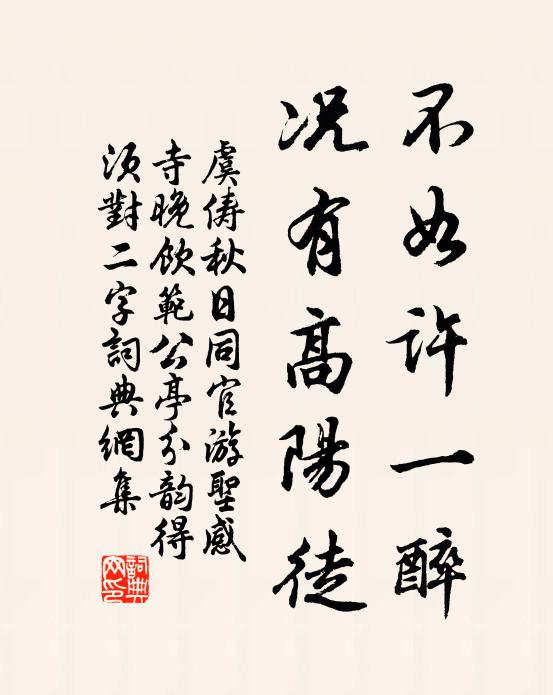 不如许一醉
况有高陽徒
虞俦秋日同官游聖感
寺晚飲範公亭分韵得
须對二字詞典網集
詞典网印